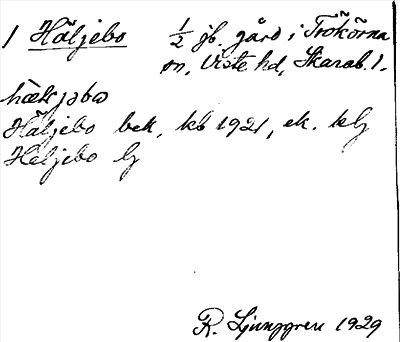 1 Häljebo ½ jb. gård i Trökörna
sn, Viste hd, Skarab. l.
hæljəbω
Häljebo bek, kb 1921, ek. klj
Häljebo lj
R. Ljunggren 1929